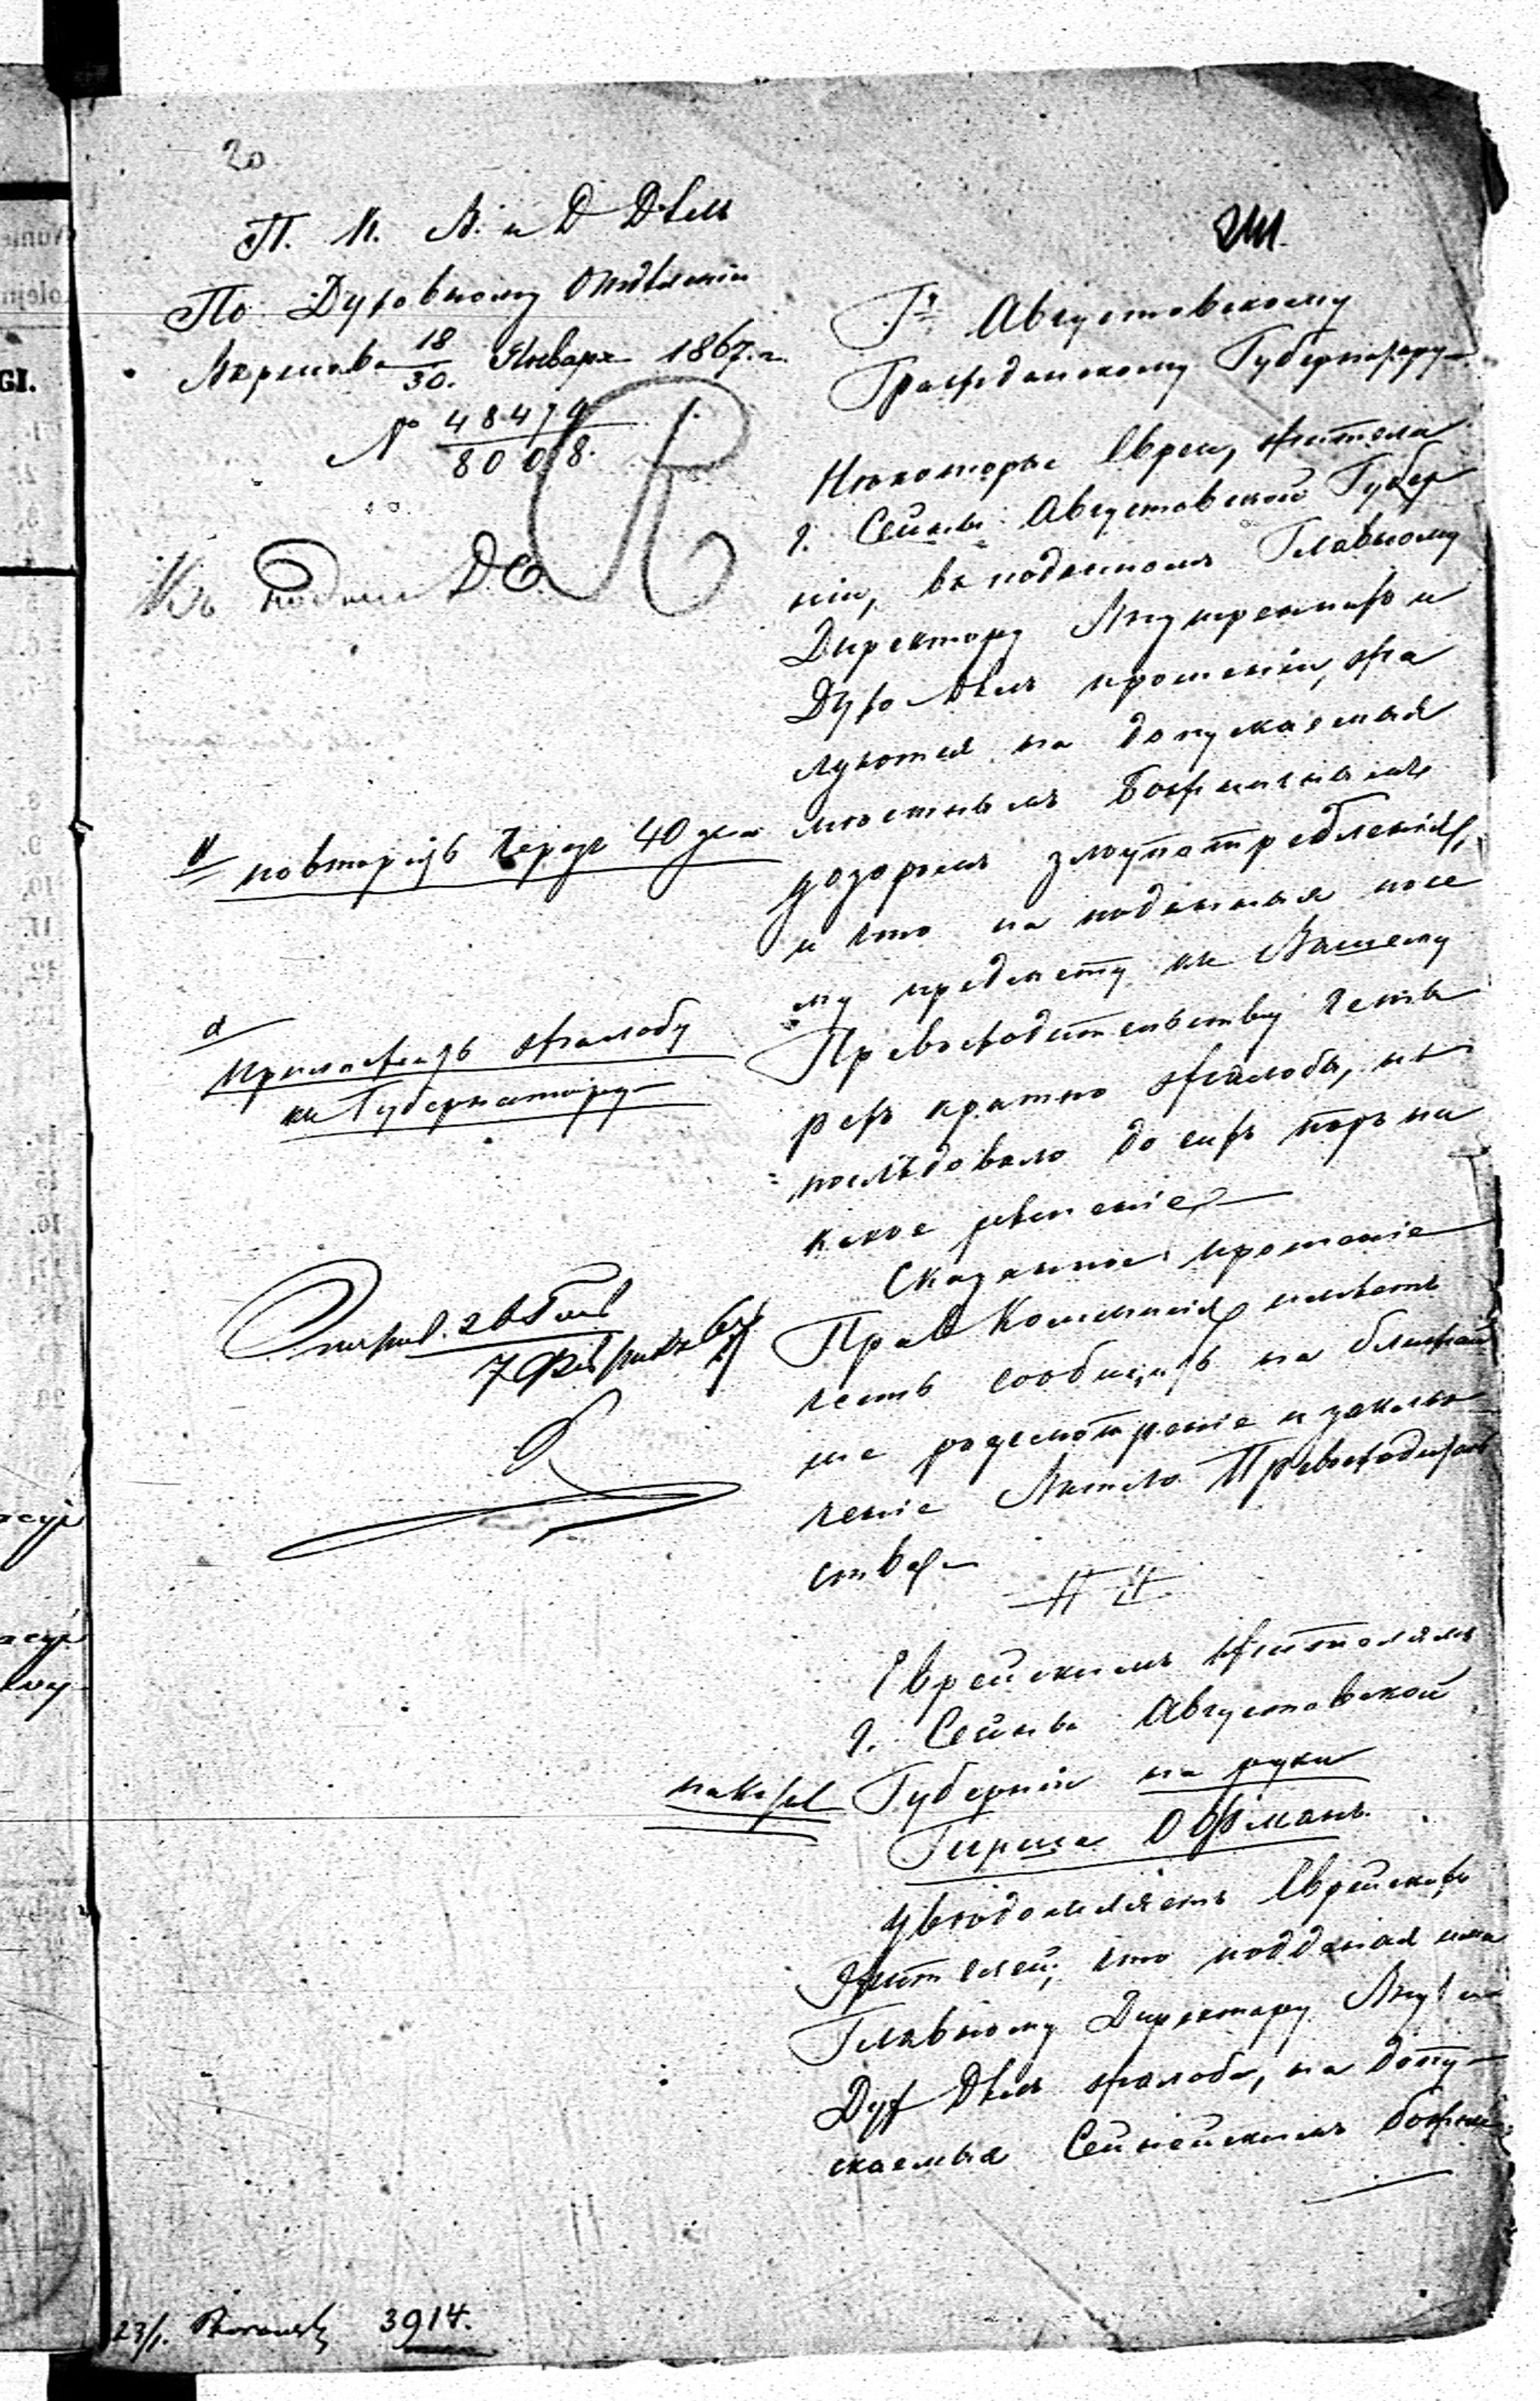 20
П. К. В. и Д Дѣлъ
По Духовному Отдѣленію
Варшава 18/30. Января 1867. г.
№ 48479/8008.
R
Къ
повторить Черезъ 40 дн
приложить жалобу
къ Губернатору
7 Февраля 67
Гну Августовскому
Гражданскому Губернатору
Нѣкоторые Евреи, жители
г. Сейны Августовской Губер
ніи, въ поданномъ Главному
Директору Внутреннихъ и
Духо Дѣлъ прошеніи, жа
луются на допускаемыя
мѣстнымъ Божничнымъ
дозоромъ злоупотребленія,
и что на поданныя по се
му предмету къ Вашему
Превосходительству четы
рехъ кратно жалобы, не
послѣдовало до сихъ поръ ни
какое рѣшеніе
Сказанное прошеніе
Прав Коммисія имѣетъ
честь сообщить на ближай
ше разсмотреніе и заклю
ченіе Вашего Превосходитель
ства
Еврейскимъ жителямъ
г. Сейны Августовской
Губерніи на руки
Гирша Офманъ.
Увѣдомляетъ Еврейскихъ
Жителей, что подданая ими
Главному Директору Внут и
Дух Дѣлъ жалоба, на допу
скаемыя Сейнейскимъ божни
23/1. 3914.